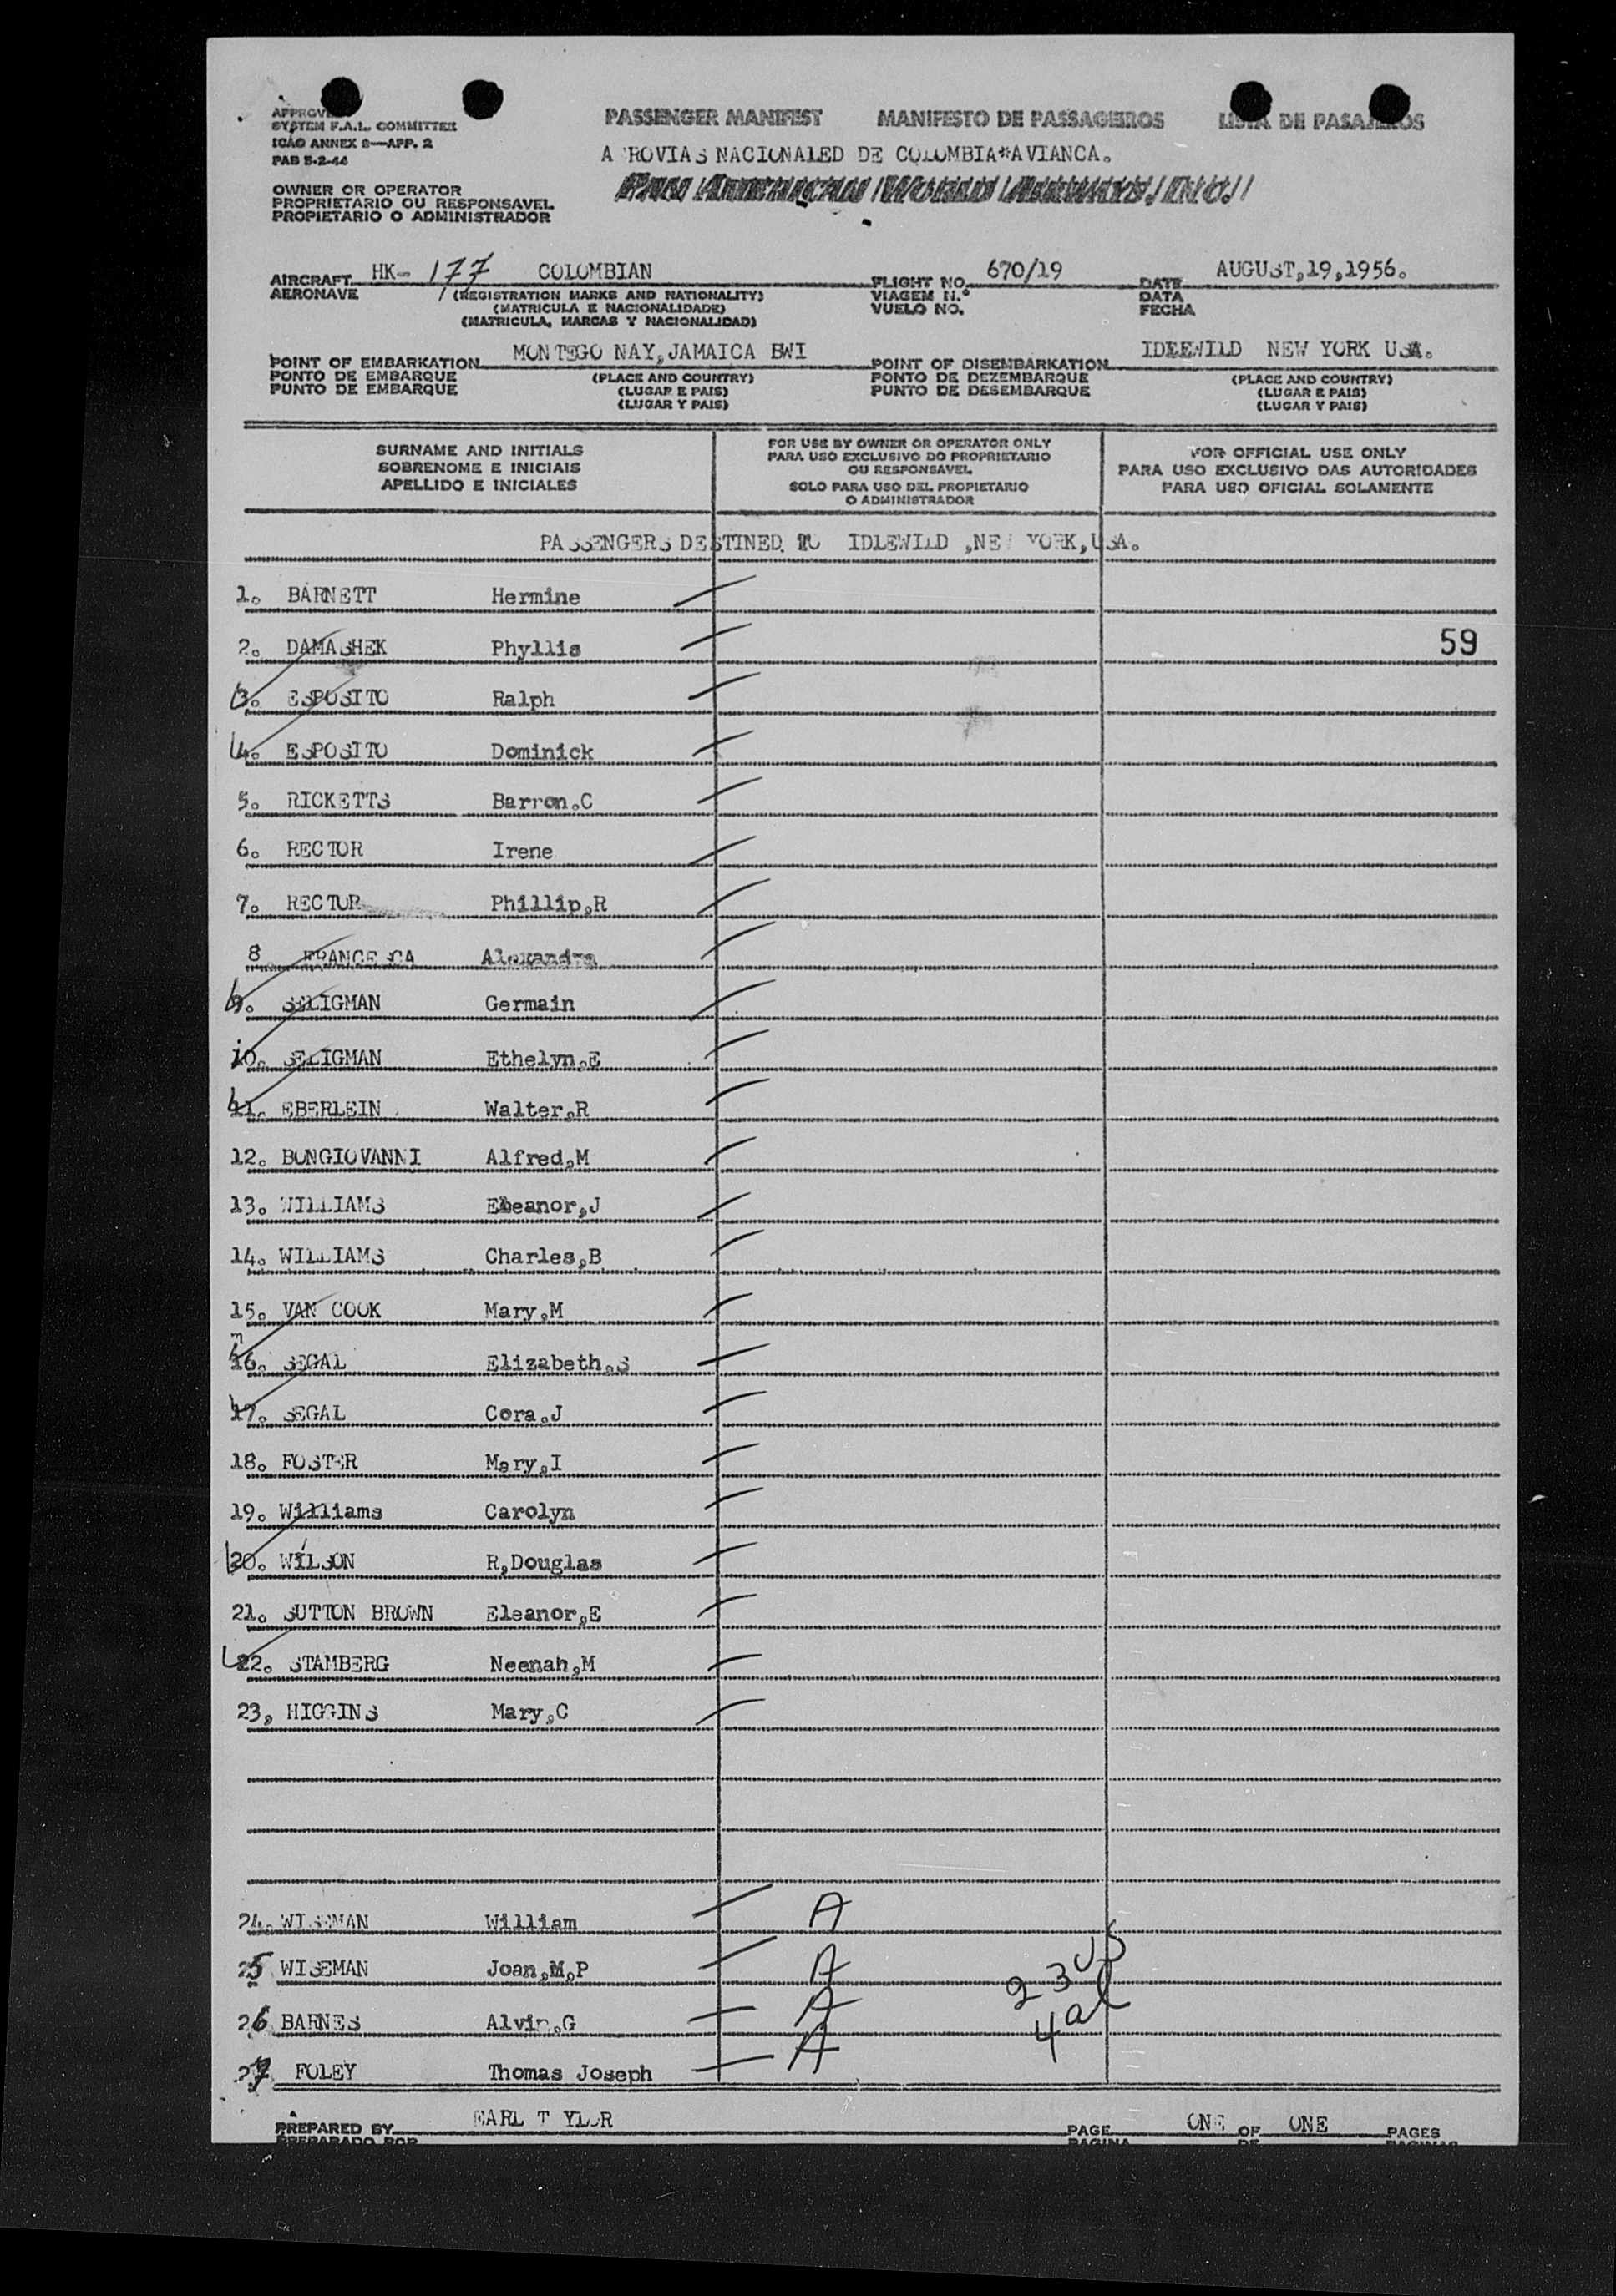 APPROVE
SYSTEM F.A.L. COMMITTEE
ICAO ANNEX 9—APP. 2
PAB 5-2-44
PASSENGER MANIFEST MANIFESTO DE PASSAGEIROS LISTA DE PASAJEROS
A ROVIAS NACIONALED DE COLOMBIA*AVIANCA.
OWNER OR OPERATOR
PROPRIETARIO OU RESPONSAVEL
PROPIETARIO O ADMINISTRADOR
PAN AMERICAN WORLD AIRWAYS, INC.
AIRCRAFT HK- 177 COLOMBIAN FLIGHT NO. 670/19 DATE AUGUST,19,1956.
AERONAVE (REGISTRATION MARKS AND NATIONALITY) VIAGEM N.º DATA
(MATRICULA E NACIONALIDADE) VUELO NO. FECHA
(MATRICULA, MARCAS Y NACIONALIDAD)
POINT OF EMBARKATION MONTEGO NAY,JAMAICA BWI POINT OF DISEMBARKATION IDLEWILD NEW YORK USA.
PONTO DE EMBARQUE (PLACE AND COUNTRY) PONTO DE DEZEMBARQUE (PLACE AND COUNTRY)
PUNTO DE EMBARQUE (LUGAR E PAIS) PUNTO DE DESEMBARQUE (LUGAR E PAIS)
(LUGAR Y PAIS) (LUGAR Y PAIS)
SURNAME AND INITIALS
SOBRENOME E INICIAIS
APELLIDO E INICIALES
FOR USE BY OWNER OR OPERATOR ONLY
PARA USO EXCLUSIVO DO PROPRIETARIO
OU RESPONSAVEL
SOLO PARA USO DEL PROPIETARIO
O ADMINISTRADOR
FOR OFFICIAL USE ONLY
PARA USO EXCLUSIVO DAS AUTORIDADES
PARA USO OFICIAL SOLAMENTE
PASSENGERS DESTINED TO IDLEWILD ,NE YORK,USA.
1. BARNETT Hermine
2. DAMASHEK Phyllis 59
3. ESPOSITO Ralph
4. ESPOSITO Dominick
5. RICKETTS Barron.C
6. RECTOR Irene
7. RECTOR Phillip.R
8 FRANCESCA Alexandra
9. SELIGMAN Germain
10. SELIGMAN Ethelyn.E
11. EBERLEIN Walter.R
12. BONGIOVANNI Alfred,M
13. WILLIAMS Eleanor,J
14. WILLIAMS Charles,B
15. VAN COOK Mary.M
m
16. SEGAL Elizabeth.S
17. SEGAL Cora.J
18. FOSTER Mary.I
19. Williams Carolyn
20. WILSON R,Douglas
21. SUTTON BROWN Eleanor,E
22. STAMBERG Neenah,M
23, HIGGINS Mary,C
24. WISEMAN William A
25 WISEMAN Joan,M,P A 23 US
26 BARNES Alvin.G A 4 al
27 FOLEY Thomas Joseph A
PREPARED BY EARL T YLOR PAGE ONE OF ONE PAGES
PREPARADO POR PAGINA DE PAGINAS